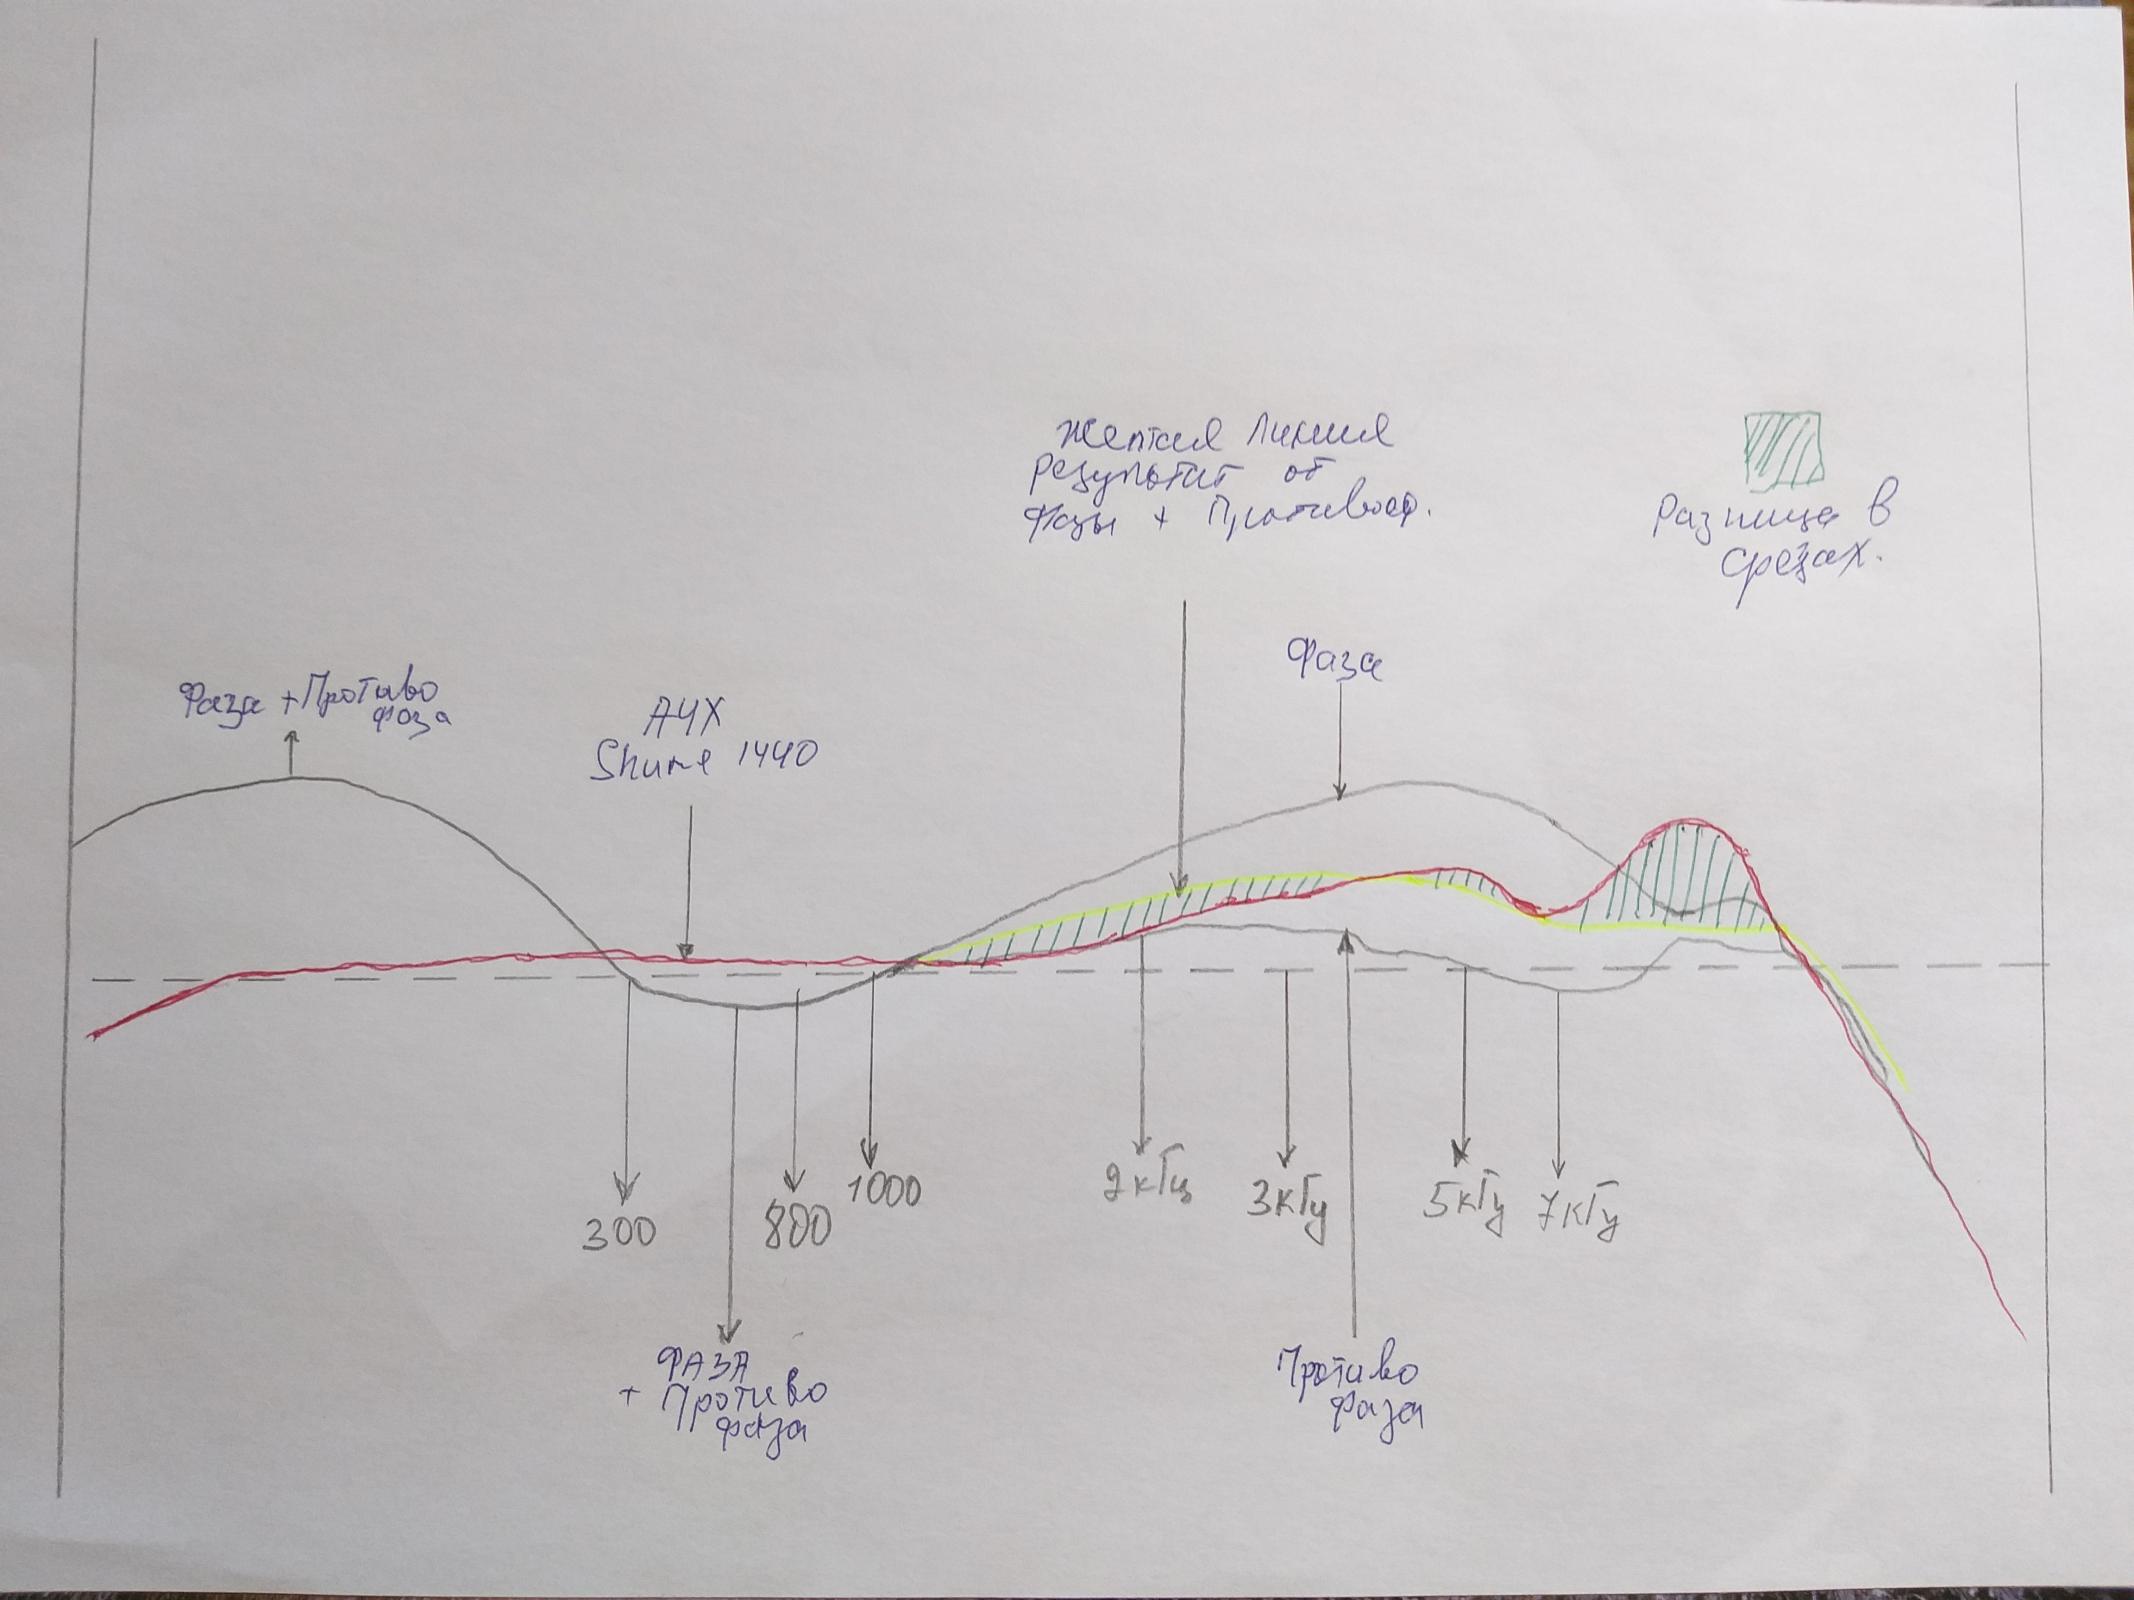 Желтая линия
результат от
Фазы + Противоф.
Разница в
срезах.
Фаза
Фаза + Противо
фаза
АЧХ
Shure 1440
300
800
1000
2кГц
3кГц
5кГц
7кГц
ФАЗА
+ Противо
фаза
Противо
фаза